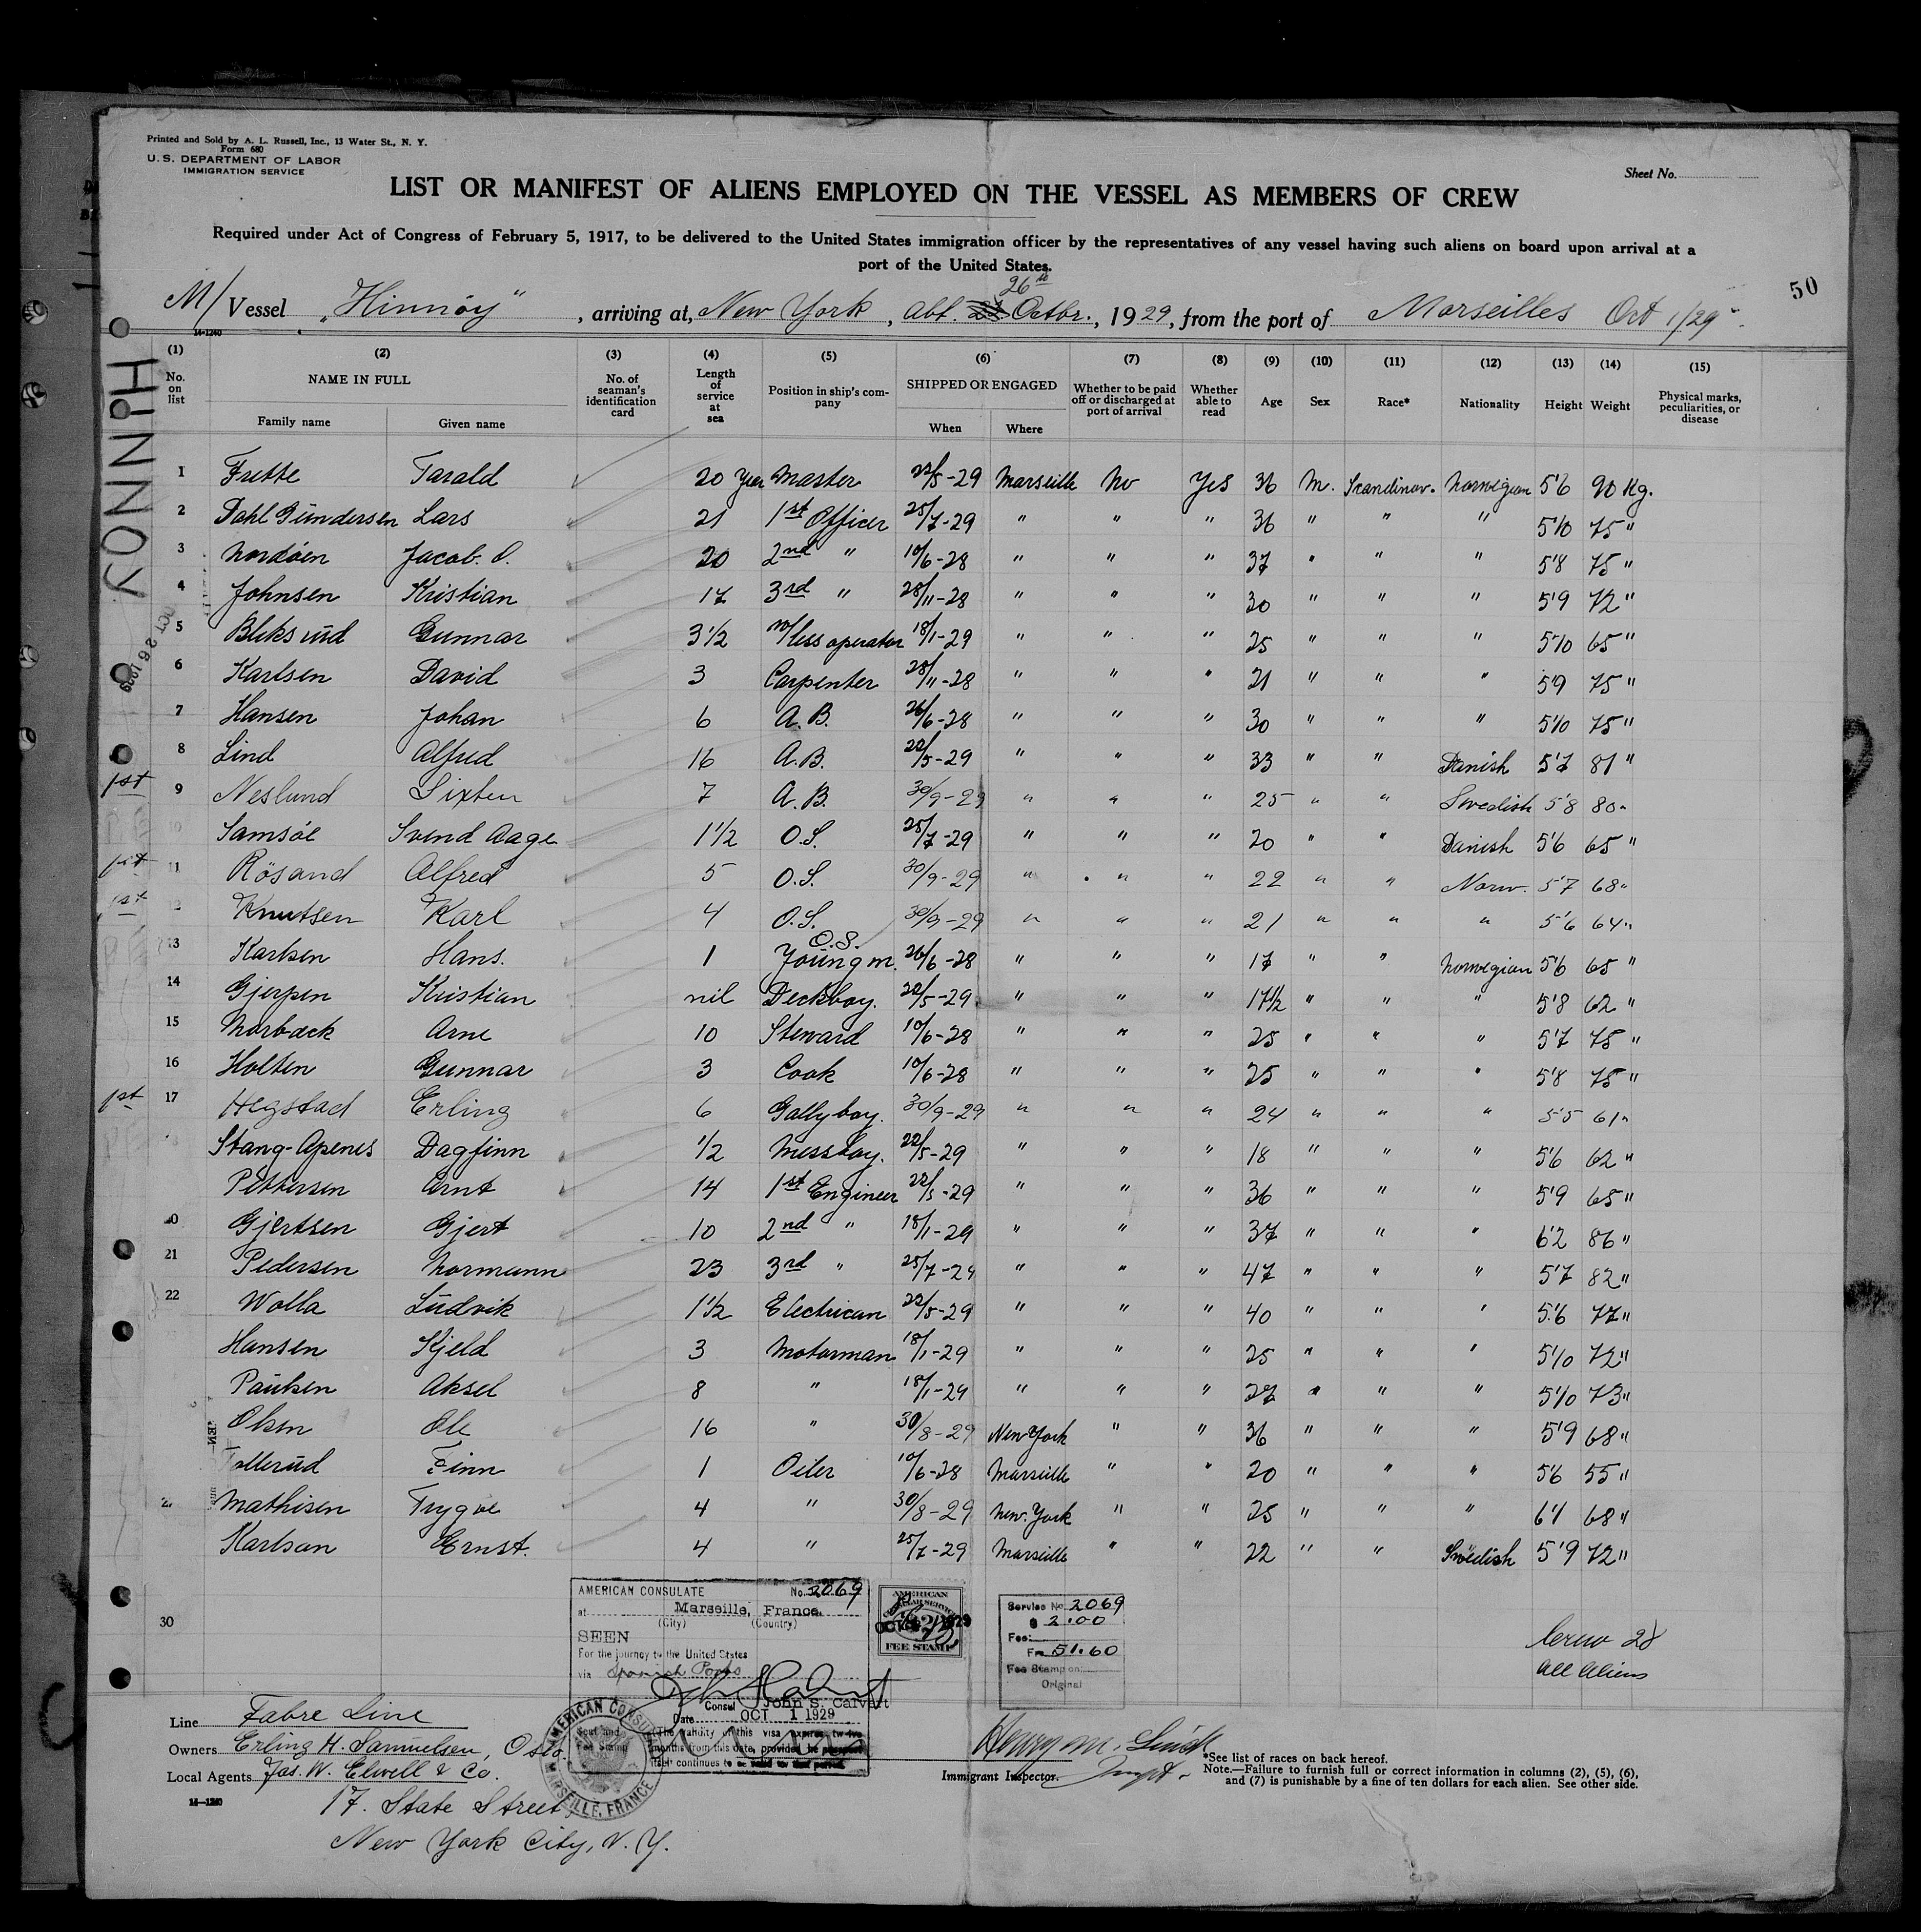 Printed and Sold by A. L. Russell, Inc., 13 Water St., N. Y.
Form 680
U. S. DEPARTMENT OF LABOR
IMMIGRATION SERVICE
Sheet No.
LIST OR MANIFEST OF ALIENS EMPLOYED ON THE VESSEL AS MEMBERS OF CREW
Required under Act of Congress of February 5, 1917, to be delivered to the United States immigration officer by the representatives of any vessel having such aliens on board upon arrival at a
port of the United States.
26th
50
M/Vessel "Hinnöy", arriving at, New York, abt. Octbr., 1929, from the port of Marseilles Oct 1/29
14-1240
HINNOY
OCT 26 1929
(1) (2) (3) (4) (5) (6) (7) (8) (9) (10) (11) (12) (13) (14) (15)
No. on list NAME IN FULL No. of seaman's identification card Length of service at sea Position in ship's company SHIPPED OR ENGAGED Whether to be paid off or discharged at port of arrival Whether able to read Age Sex Race* Nationality Height Weight Physical marks, peculiarities, or disease
Family name Given name When Where
1 Frette Tarald 20 Year Master 22/5-29 Marseille No Yes 36 M. Scandinav. Norwegian 5'6 90 Kg.
2 Dahl Gündersen Lars 21 1st Officer 25/7-29 " " " 36 " " " 5'10 75 "
3 Nordöen Jacob. O. 20 2nd " 10/6-28 " " " 37 " " " 5'8 75 "
4 Johnsen Kristian 17 3rd " 28/11-28 " " " 30 " " " 5'9 72 "
5 Bliksrüd Gunnar 3 1/2 w/less operator 18/1-29 " " " 25 " " " 5'10 65 "
6 Karlsen David 3 Carpenter 28/11-28 " " " 21 " " " 5'9 75 "
7 Hansen Johan 6 A. B. 26/6-28 " " " 30 " " " 5'10 75 "
8 Lind Alfred 16 A. B. 22/5-29 " " " 33 " " Danish 5'7 81 "
1st 9 Neslund Sixten 7 A. B. 30/9-29 " " " 25 " " Swedish 5'8 80 "
10 Samsöe Svend Aage 1 1/2 O.S. 25/7-29 " " " 20 " " Danish 5'6 65 "
1st 11 Rösand Alfred 5 O.S. 30/9-29 " " " 22 " " Norw. 5'7 68 "
1st Knutsen Karl 4 O.S. 30/9-29 " " " 21 " " " 5'6 64 "
O.S.
13 Karlsen Hans. 1 Young m. 26/6-28 " " " 17 " " Norwegian 5'6 65 "
14 Gjerpen Kristian nil Deckboy. 22/5-29 " " " 17 1/2 " " " 5'8 62 "
15 Morbæck Arne 10 Steward 10/6-28 " " " 25 " " " 5'7 75 "
16 Holten Gunnar 3 Cook 10/6-28 " " " 25 " " " 5'8 75 "
1st 17 Hegstad Erling 6 Gallyboy. 30/9-29 " " " 24 " " " 5'5 61 "
Stang-Apenes Dagfinn 1/2 Messboy. 22/5-29 " " " 18 " " " 5'6 62 "
Pettersen Arnt 14 1st Engineer 22/5-29 " " " 36 " " " 5'9 65 "
20 Gjertsen Gjert 10 2nd " 18/1-29 " " " 37 " " " 6'2 86 "
21 Pedersen Normann 23 3rd " 25/7-29 " " " 47 " " " 5'7 82 "
22 Wolla Lüdvik 1 1/2 Electrican 22/5-29 " " " 40 " " " 5'6 77 "
Hansen Kjeld 3 Motorman 18/1-29 " " " 25 " " " 5'10 72 "
Paülsen Aksel 8 " 18/1-29 " " " 27 " " " 5'10 73 "
Olsen Ole 16 " 30/8-29 New York " " 36 " " " 5'9 68 "
Tollerüd Finn 1 Oiler 10/6-28 Marseille " " 20 " " " 5'6 55 "
Mathisen Trygve 4 " 30/8-29 New York " " 25 " " " 6'1 68 "
Karlson Ernst. 4 " 25/7-29 Marseille " " 22 " " Swedish 5'9 72 "
30
AMERICAN CONSULATE No. 2069
at Marseille, France.
(City) (Country)
SEEN
For the journey to the United States
via Spanish Ports
Consul John S. Calvert
Date OCT 1 1929
Seal and Fee Stamp
The validity of this visa expires twelve
months from this date, provided
continues to
AMERICAN CONSULAR SERVICE
FEE STAMP
AMERICAN CONSULATE
MARSEILLE, FRANCE
Service No. 2069
$ 2.00
Fee:
Frs 51.60
Fee Stamp on
Original
Crew 28
All Aliens
Line Fabre Line
Owners Erling H. Samuelsen, Oslo.
Local Agents Jas. W. Elwell & Co.
14-1240
17. State Street,
New York City, N. Y.
Immigrant Inspector.
*See list of races on back hereof.
Note.—Failure to furnish full or correct information in columns (2), (5), (6),
and (7) is punishable by a fine of ten dollars for each alien. See other side.